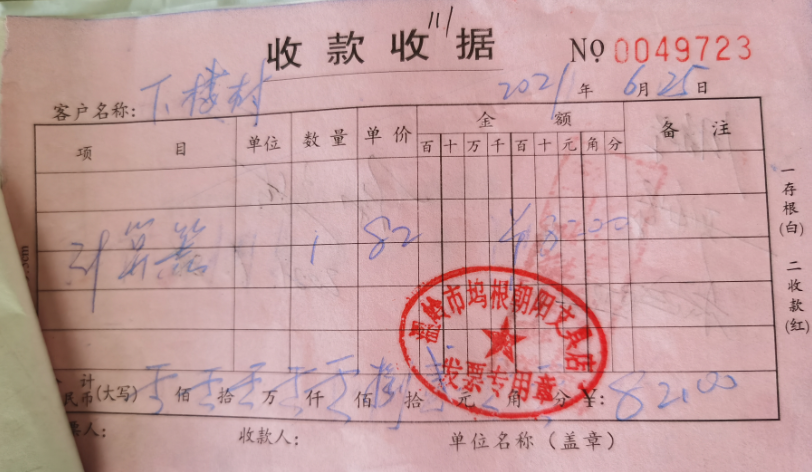 收款收据 No 0049723
客户名称: 下楼村 2021年6月25日
项目 单位 数量 单价 金额 备注
百 十 万 千 百 十 元 角 分
计算器 1 82 ¥8200
温岭市坞根朝阳文具店
发票专用章
一存根(白)
二收款(红)
计
民币(大写) 零佰零拾零万零仟零佰捌拾贰元零角零分 ¥: 82.00
票人: 收款人: 单位名称(盖章)